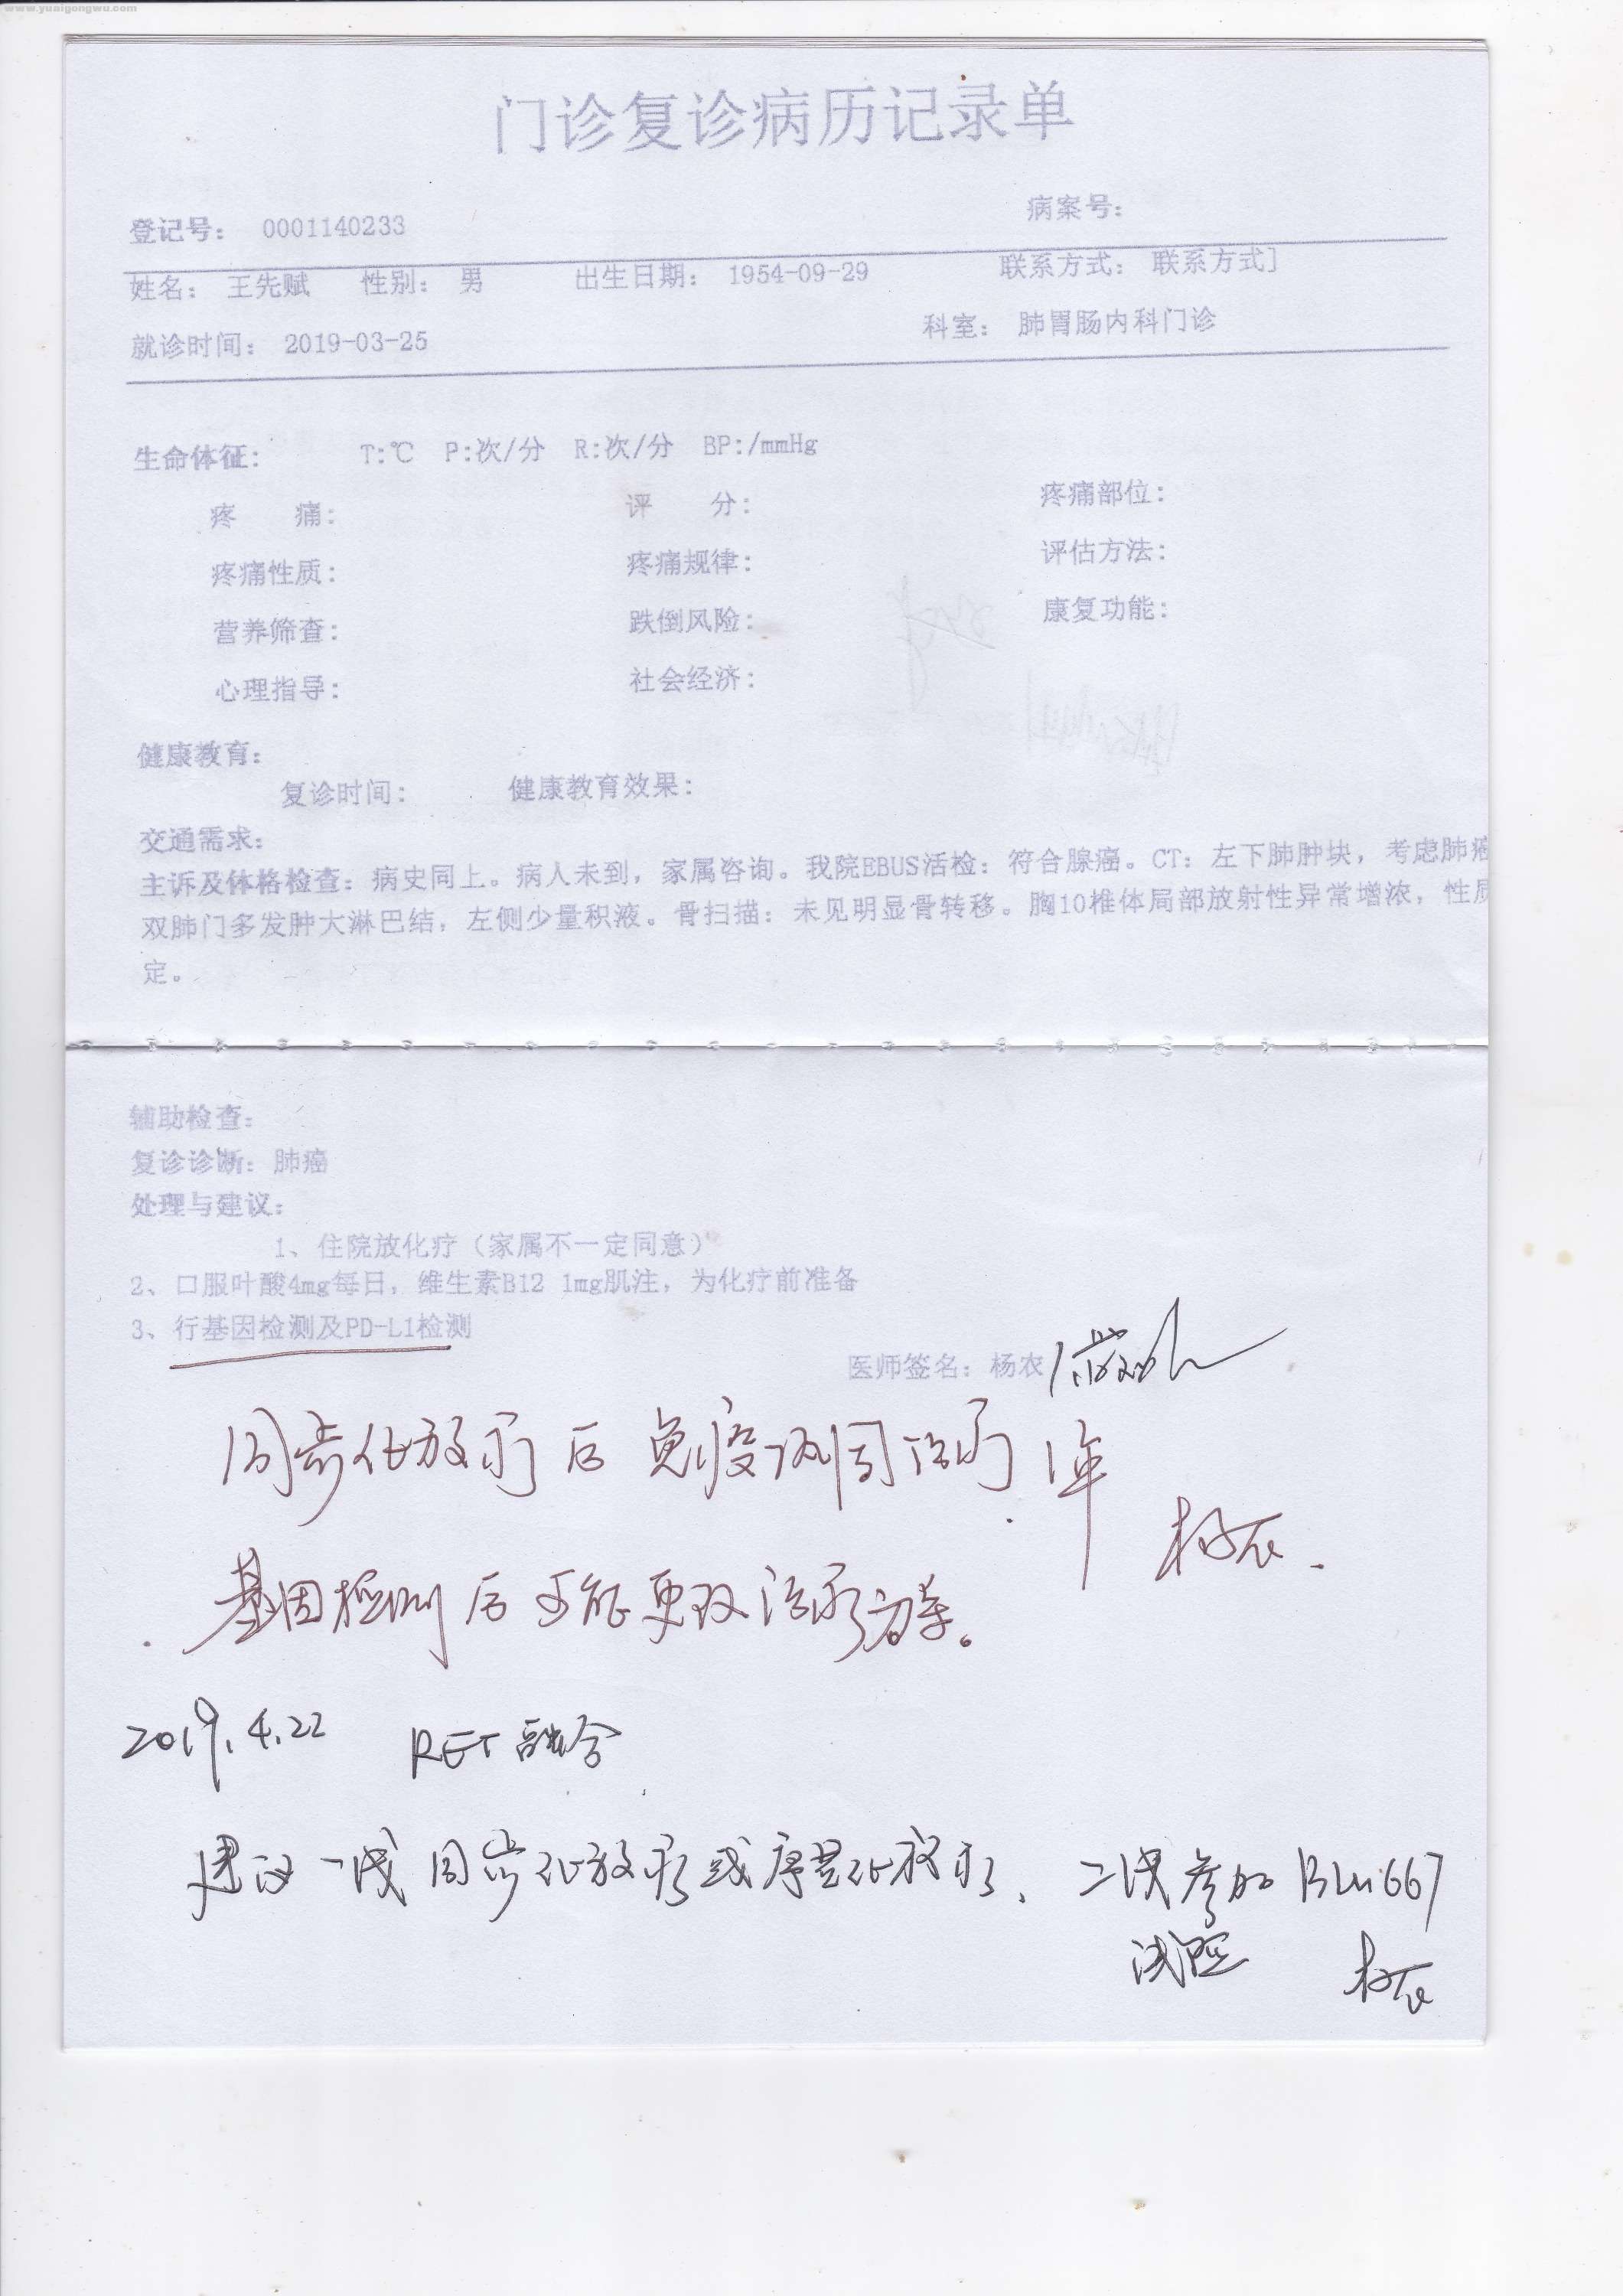 www.yuaigongwu.com
门诊复诊病历记录单
登记号: 0001140233 病案号:
姓名: 王先赋 性别: 男 出生日期: 1954-09-29 联系方式: 联系方式]
就诊时间: 2019-03-25 科室: 肺胃肠内科门诊
生命体征: T:℃ P:次/分 R:次/分 BP:/mmHg
疼 痛: 评 分: 疼痛部位:
疼痛性质: 疼痛规律: 评估方法:
营养筛查: 跌倒风险: 康复功能:
心理指导: 社会经济:
健康教育:
复诊时间: 健康教育效果:
交通需求:
主诉及体格检查: 病史同上。病人未到, 家属咨询。我院EBUS活检: 符合腺癌。CT: 左下肺肿块, 考虑肺癌
双肺门多发肿大淋巴结, 左侧少量积液。骨扫描: 未见明显骨转移。胸10椎体局部放射性异常增浓, 性质
定。
辅助检查:
复诊诊断: 肺癌
处理与建议:
1、住院放化疗（家属不一定同意）
2、口服叶酸4mg每日, 维生素B12 1mg肌注, 为化疗前准备
3、行基因检测及PD-L1检测
医师签名: 杨农
同步化放疗后免疫巩固治疗1年
杨农.
基因检测后可能更改治疗方案。
2019.4.22 RET融合
建议一线同步化放疗或序贯化放疗、二线参加BLU667
试验 杨农